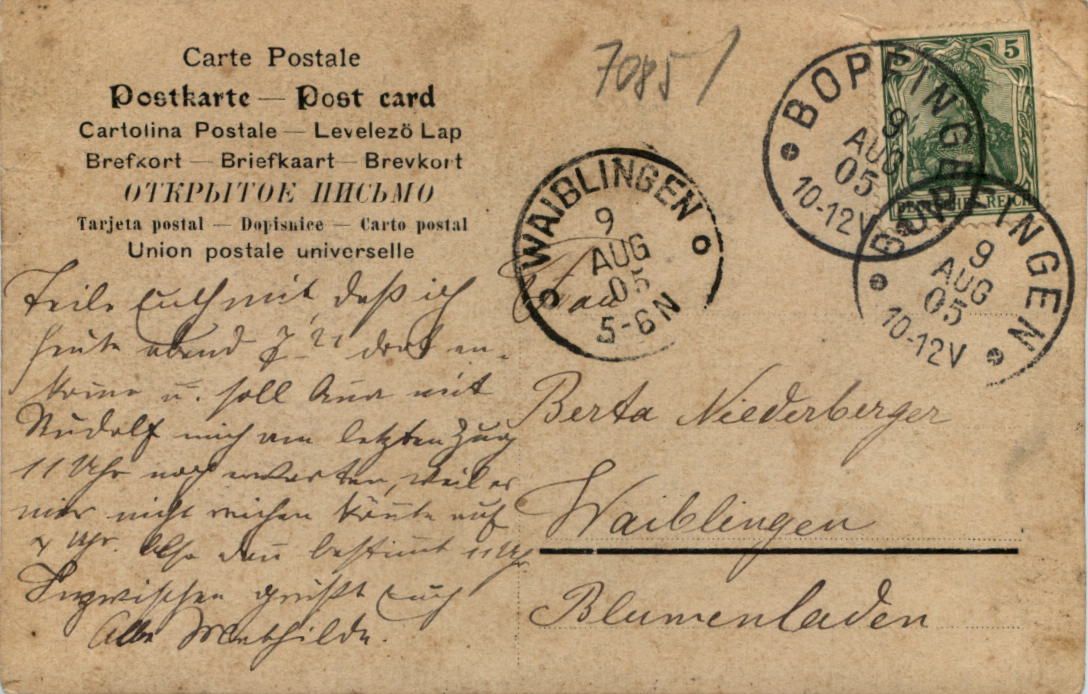 Carte Postale
Postkarte — Post card
Cartolina Postale — Levelezö Lap
Brefkort — Briefkaart — Brevkort
ОТКРЫТОЕ ПИСЬМО
Tarjeta postal — Dopisnice — Carto postal
Union postale universelle
7085/
5
DEUTSCHES REICH
BOPFINGEN
9
AUG
05
10-12V
BOPFINGEN
9
AUG
05
10-12V
WAIBLINGEN
9
AUG
05
5-6N
Teile Euch mit, daß ich
heute abend 7 22 dort an-
komme u. soll Anna mit
Rudolf mich am letzten Zug
11 Uhr noch erwarten, weil es
mir nicht reichen könnte auf
7 Uhr. Also dann bestimmt 11 Uhr
Inzwischen grüßt Euch
Alle Mathilde.
Frau
Berta Niederberger
Waiblingen
Blumenladen